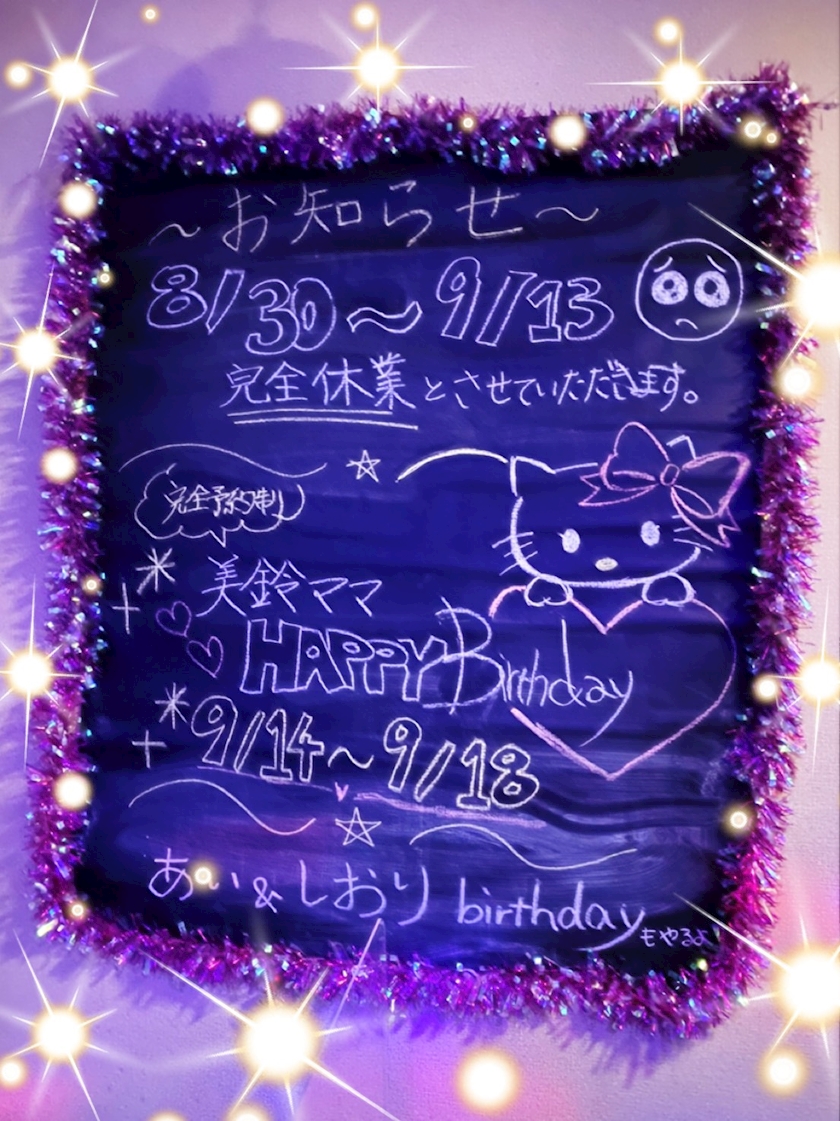 ～お知らせ～
8/30～9/13
完全休業とさせていただきます。
完全予約制
美鈴ママ
HAPPY Birthday
9/14～9/18
あい&しおり birthday
もやるよ